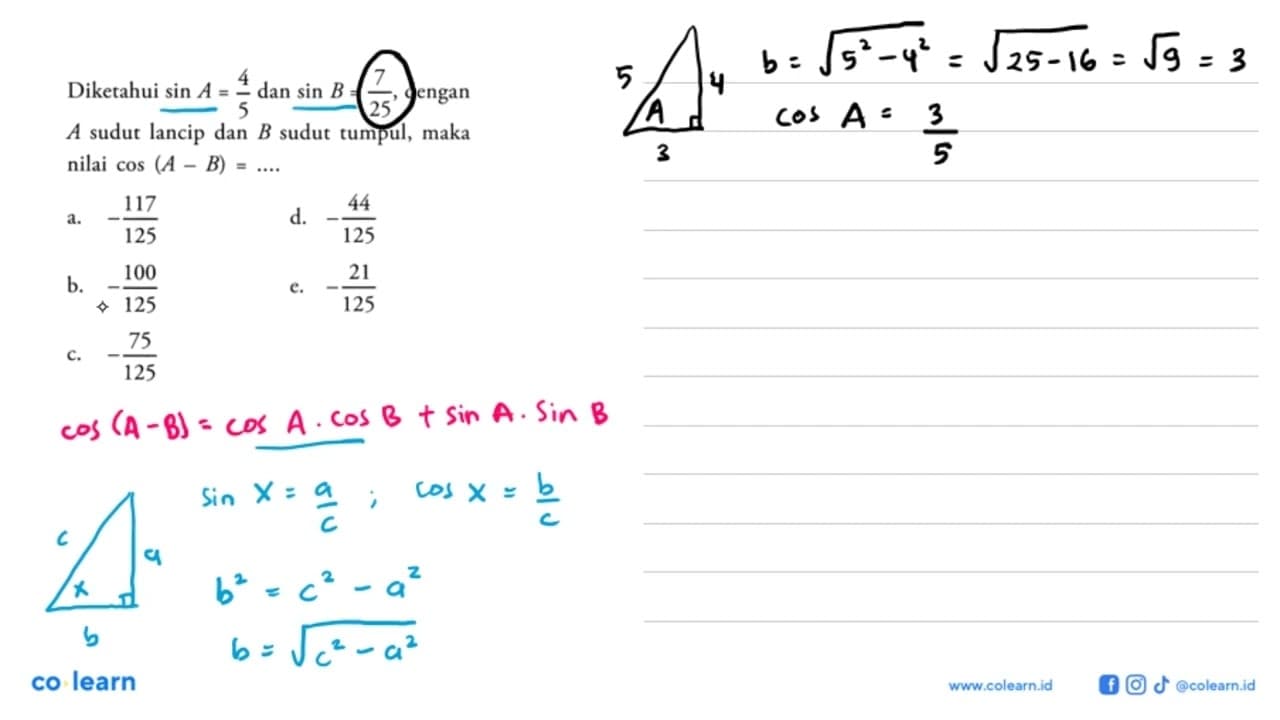 Diketahui sin A = 4/5 dan sin B = 7/25, dengan
A sudut lancip dan B sudut tumpul, maka
nilai cos (A – B) = ....
a. –117/125
d. –44/125
b. –100/125
e. –21/125
c. –75/125
cos (A-B) = cos A . cos B + sin A . sin B
c
a
x
b
sin x = a/c ; cos x = b/c
b² = c² - a²
b = √(c² - a²)
5
4
A
3
b = √(5² - 4²) = √(25-16) = √9 = 3
cos A = 3/5
co learn
www.colearn.id
@colearn.id